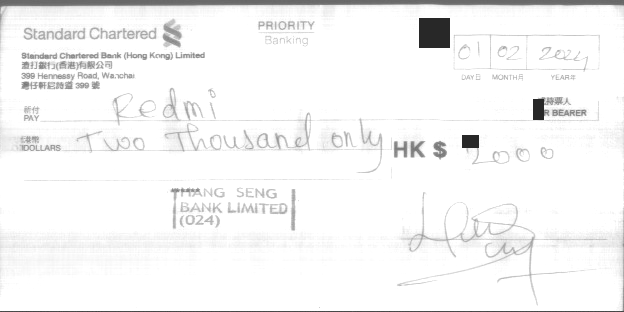 Standard Chartered
PRIORITY
Banking
Standard Chartered Bank (Hong Kong) Limited
渣打銀行(香港)有限公司
399 Hennessy Road, Wanchai
灣仔軒尼詩道 399 號
01 02 2024
DAY日 MONTH月 YEAR年
祈付
PAY Redmi
持票人
R BEARER
港幣
DOLLARS Two Thousand only HK $ 2000
HANG SENG
BANK LIMITED
(024)